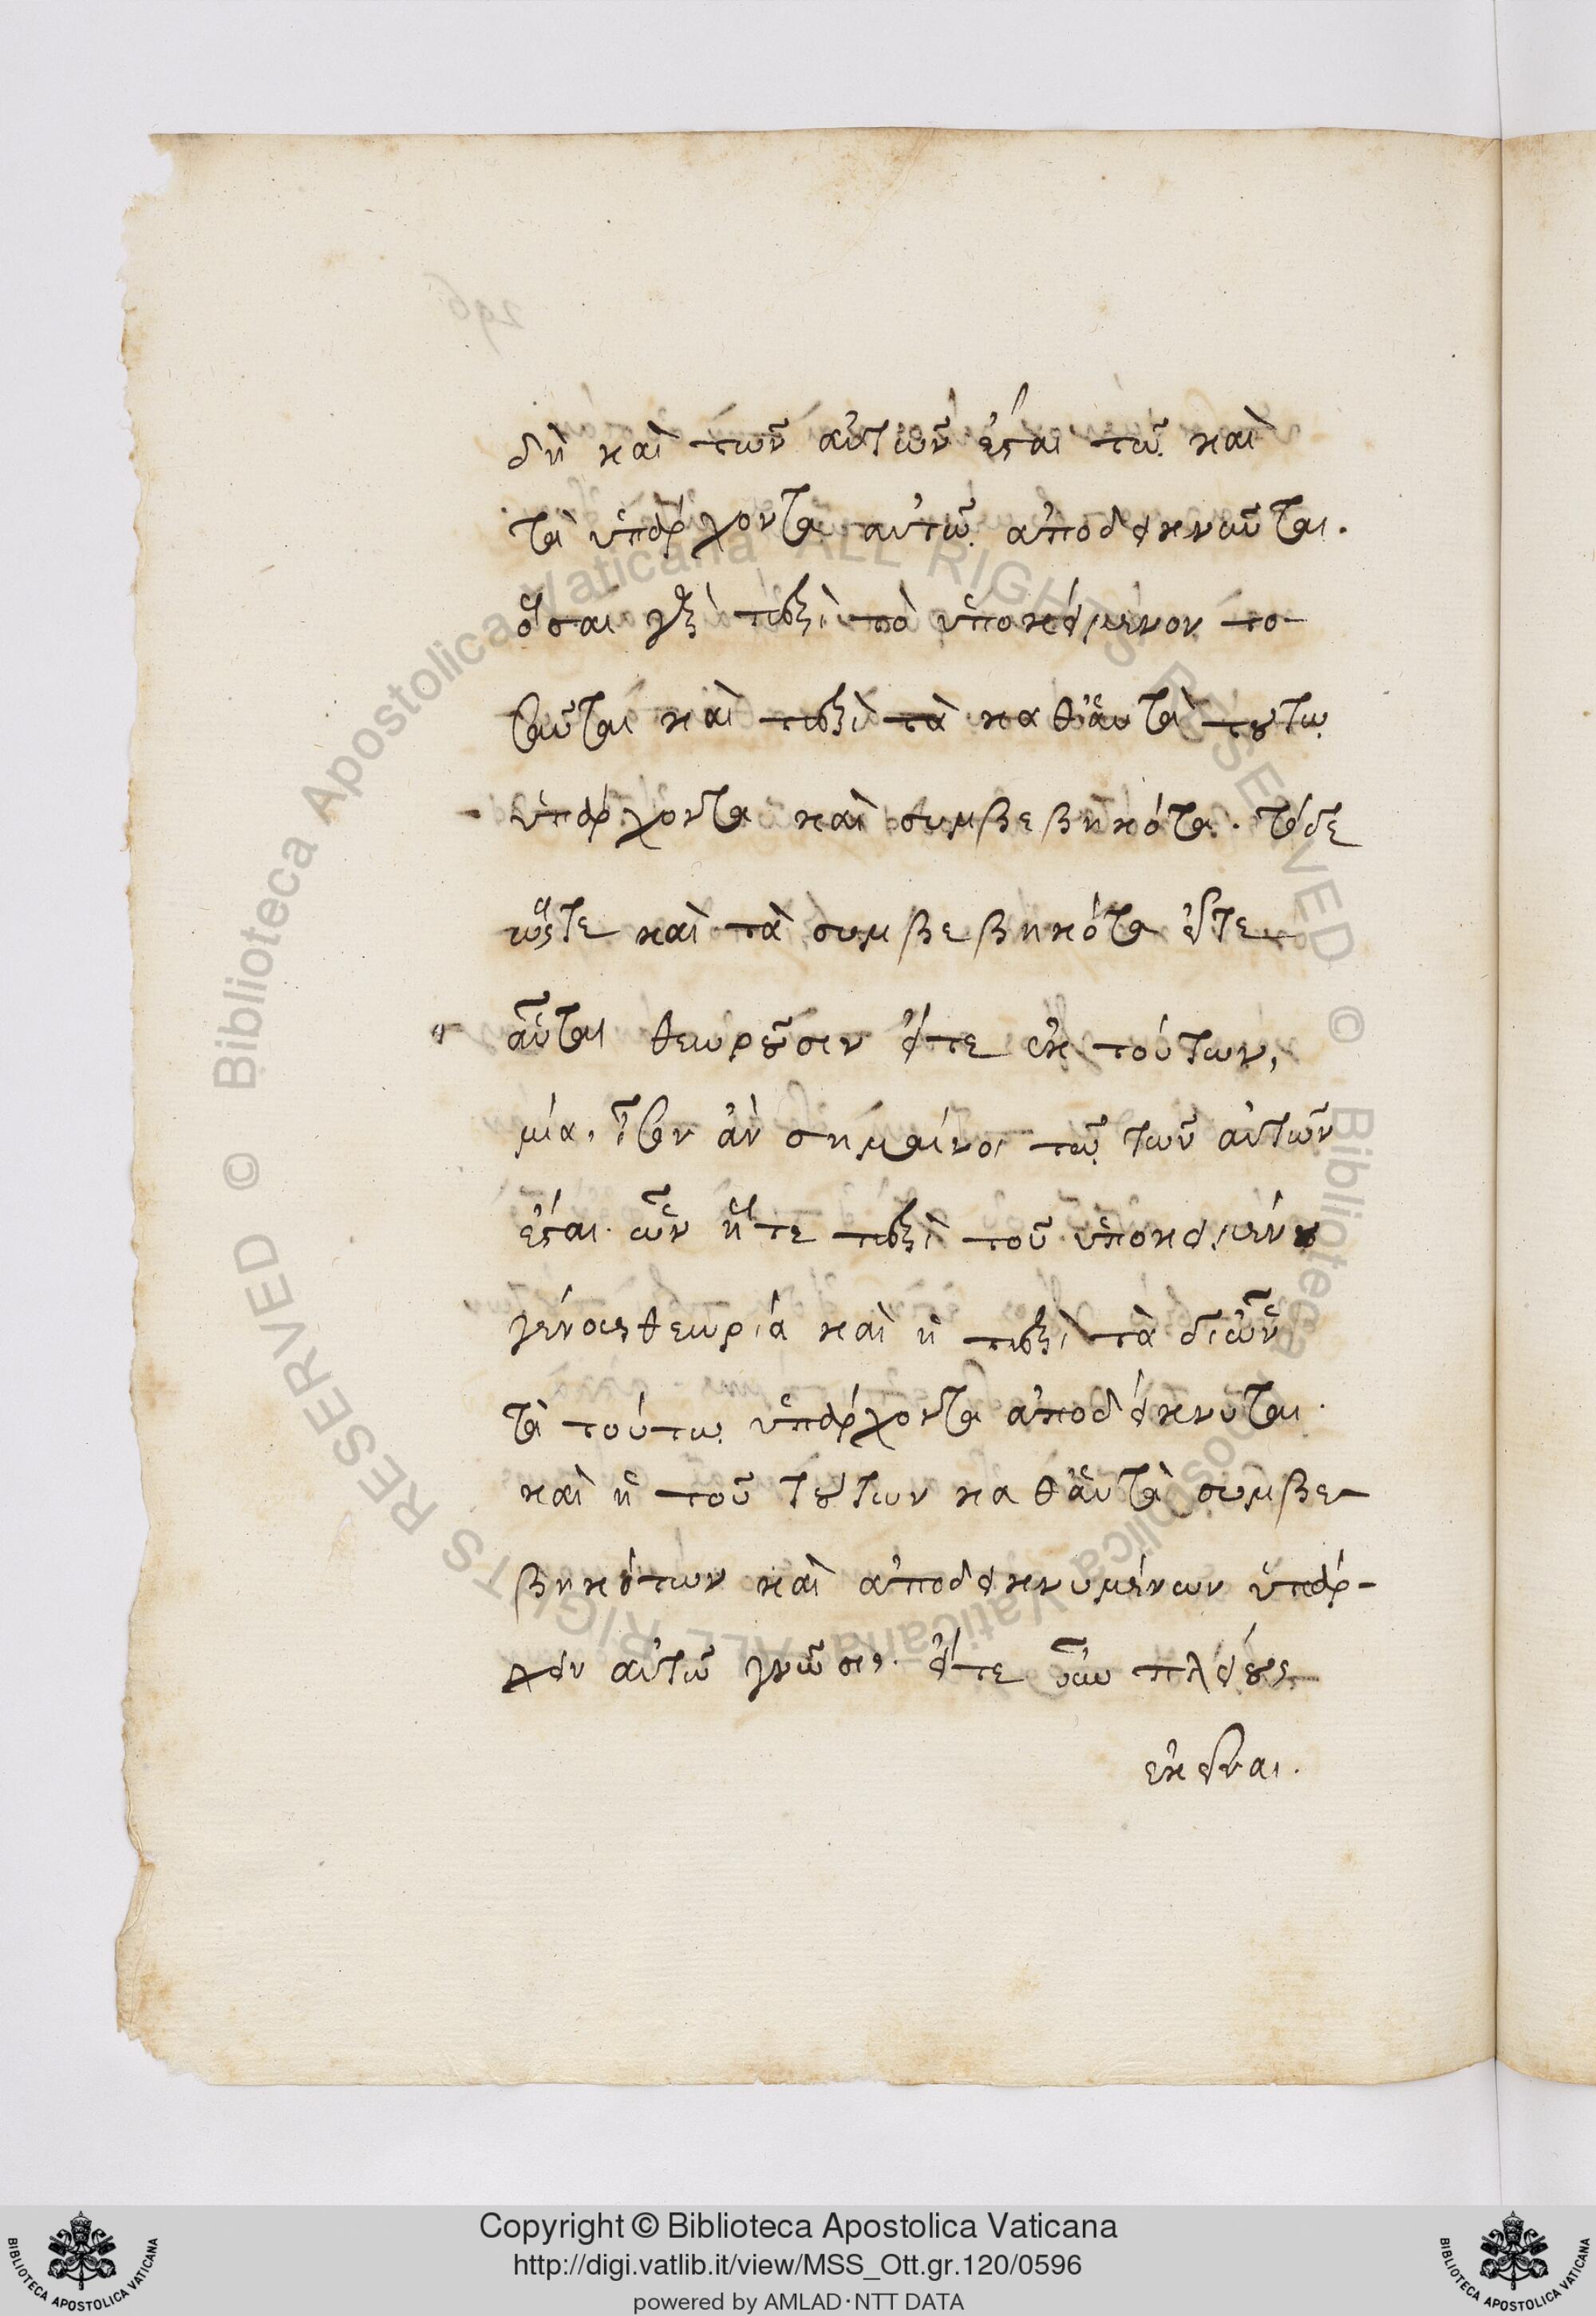 δὴ καὶ τῶν αὐτῶν ἔσται τῷ καὶ
τὰ ὑπάρχοντα αὐτῷ ἀποδεικνῦται.
ὅσαι γὰρ περὶ τὸ ὑποκείμενον το-
ταῦται καὶ περὶ τὰ καθ' αὑτὰ τούτῳ
ὑπάρχοντα καὶ συμβεβηκότα. τάδε
ὥστε καὶ τὰ συμβεβηκότα εἴτε
αὗται θεωροῦσιν εἴτε ἐκ τούτων,
μία. ἴσον ἂν σημαίνοι τῷ τῶν αὐτῶν
ἔσται. ὧν ἥ τε περὶ τοῦ ὑποκειμένου
γένους θεωρία καὶ ἡ περὶ τὰ δι' ὧν
τὰ τούτῳ ὑπάρχοντα ἀποδείκνυται.
καὶ ἡ τοῦ τούτων καθ' αὑτὰ συμβε-
βηκότων καὶ ἀποδεικνυμένων ὑπάρ-
χειν αὐτῷ γνῶσις. εἴτε οὖν πλείους
ἐκεῖναι.
Copyright © Biblioteca Apostolica Vaticana
http://digi.vatlib.it/view/MSS_Ott.gr.120/0596
powered by AMLAD·NTT DATA
© Biblioteca Apostolica Vaticana ALL RIGHTS RESERVED
© Biblioteca Apostolica Vaticana ALL RIGHTS RESERVED
BIBLIOTECA APOSTOLICA VATICANA
BIBLIOTECA APOSTOLICA VATICANA